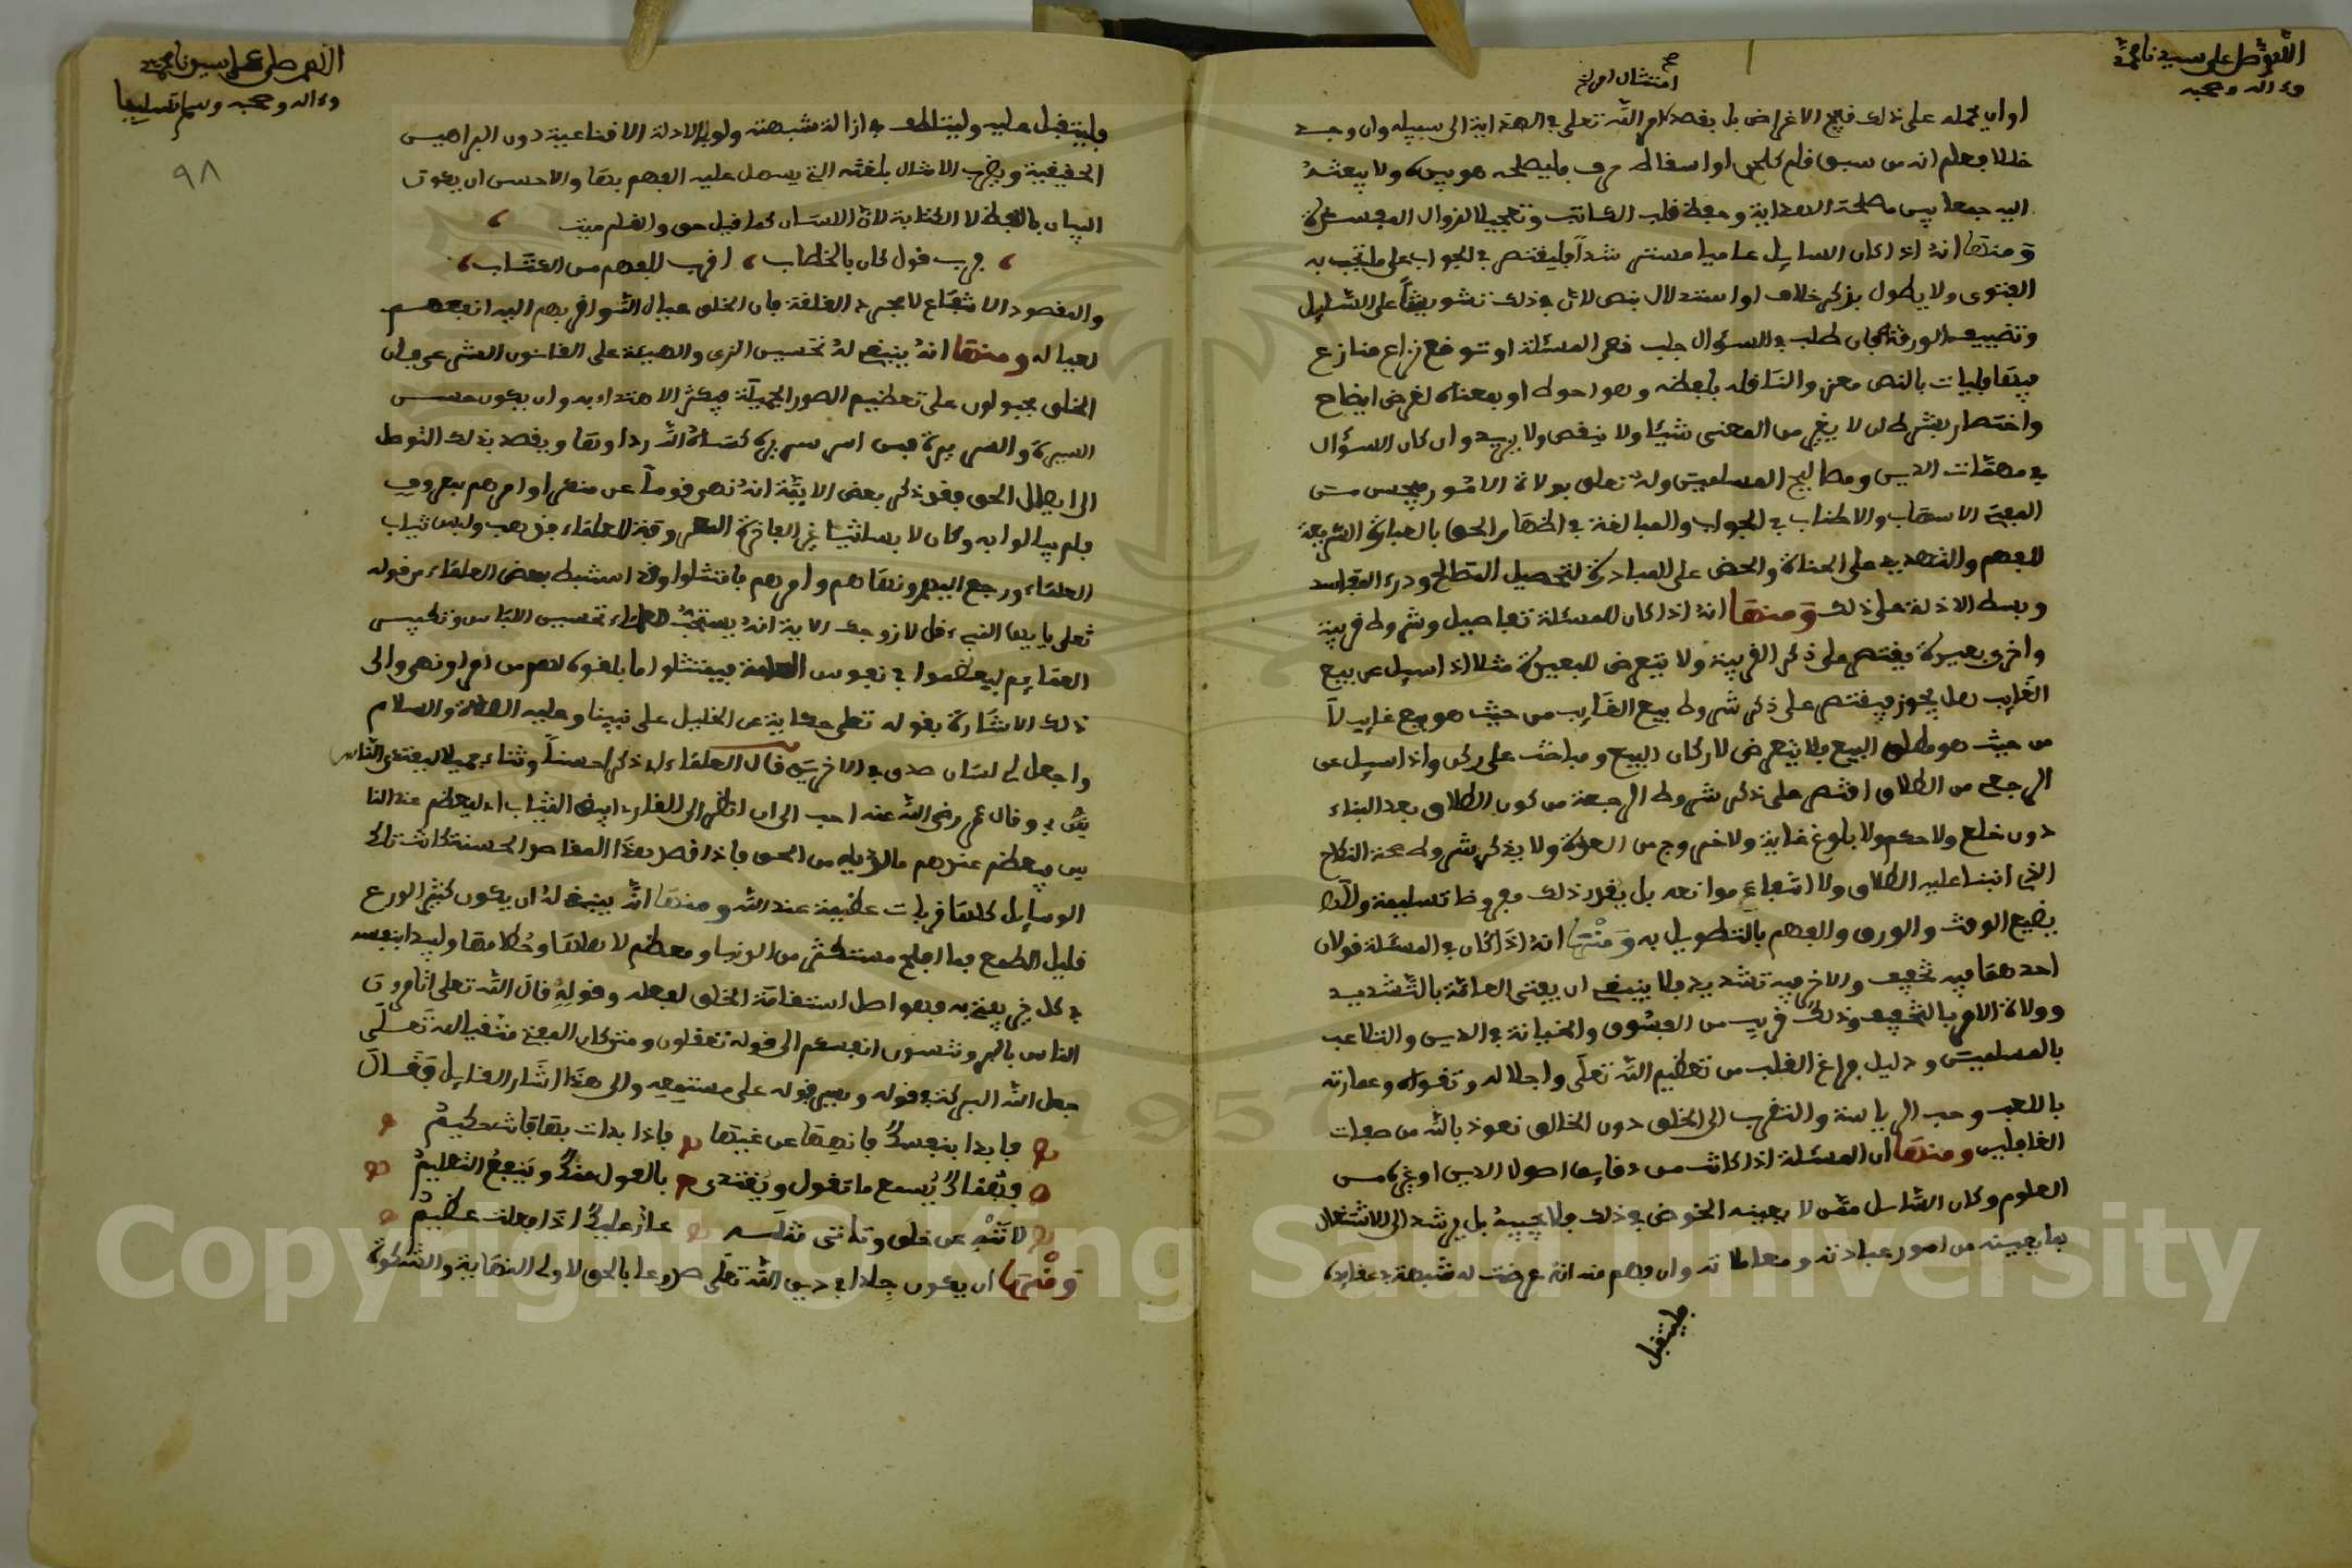 اللهم صل على سيدنا محمد
وءاله وصحبه
امتثال امر الله صح
او ان يحمله على ذلك قبيح الاغراض بل يقصد امر الله تعلى في الهداية الى سبيله وان وجد
خللا يعلم انه من سبق قلم كلحن او اسقاط حرف فليصلحه هو بيده ولا يبعثه
اليه جمعا بين مصلحة الاعداية وحفظ قلب الكاتب وتعجيلا لزوال المفسدة
ومنها انه اذا كان السايل عاميا مسترشدا فليقتصر في الجواب على ما تجب به
الفتوى ولا يطول بذكر خلاف او استدلال بنص لان في ذلك تشويشا على السايل
وتضييع الورقة فان طلب في السؤال جلب نص المسئلة او توقع نزاع منازع
فيها فليات بالنص معزو والناقله بلفظه وهو احوط او بمعناه لغرض ايضاح
واختصار بشرط ان لا يغير من المعنى شيئا ولا ينقص ولا يزيد وان كان السؤال
في مهمات الدين ومصالح المسلمين وله تعلق بولاة الامور فيحسن من
المفتي الاسهاب والاطناب في الجواب والمبالغة في اظهار الحق بالعبارة السريعة
للفهم والتهديد على الجناة والحض على المبادرة لتحصيل المصالح ودرء المفاسد
وبسط الادلة على ذلك ومنها انه اذا كان للمسئلة تفاصيل وشروط قريبة
واخرى بعيدة يقتصر على ذكر القريبة ولا يتعرض للبعيدة مثلا اذا سيل عن بيع
الغايب هل يجوز فيقتصر على ذكر شروط بيع الغايب من حيث هو بيع غايب لا
من حيث هو مطلق البيع فلا يتعرض لاركان البيع ومباحث على ركن واذا سيل عن
الرجعى من الطلاق اقتصر على ذكر شروط الرجعة من كون الطلاق بعد البناء
دون خلع ولا حكم ولا بلوغ غاية ولا خروج من العدة ولا يذكر شروط صحة النكاح
الذي انبنا عليه الطلاق ولا انتفاء موانعه بل يقدر ذلك مفروضا تسليمه والا
يضيع الوقت والورق والفهم بالتطويل به ومنها انه اذا كان في المسئلة قولان
احدهما فيه تخفيف والاخر فيه تشديد فلا ينبغي ان يفتى العامة بالتشديد
وولاة الامر بالتخفيف وذلك قريب من الفسوق والخيانة في الدين والتلاعب
بالمسلمين ودليل فراغ القلب من تعظيم الله تعلى واجلاله وتقواه وعمارته
باللعب وحب الرياسة والتقرب الى الخلق دون الخالق نعوذ بالله من صفات
الغافلين ومنها ان المسئلة اذا كانت من دقايق اصول الدين او غيره من
العلوم وكان السايل ممن لا يعينه الخوض في ذلك فلا يجيبه بل يرشد الى الاشتغال
بما يعينه من امور عبادته ومعاملاته وان فهم منه انه عرضت له شبهة في عقايده
فليتقبل
اللهم صل على سيدنا محمد
وءاله وصحبه وسلم تسليما
٩٨
فليتقبل عليه وليتلطف في ازالة شبهته ولو بالادلة الاقناعية دون البراهين
الحقيقية ويضرب الامثال بلغته التي يسهل عليه الفهم بها والاحسن ان يكون
البيان باللفظ لا الكتابة لان اللسان كما قيل حى والقلم ميت
فرب قول كان بالخطاب اقرب للفهم من الكتاب
والمقصود الانتفاع لا مجرد الغلفة فان الخلق عيال الله واقربهم اليه انفعهم
لعياله ومنها انه ينبغي له تحسين الزي والهيئة على القانون الشرعي فان
الخلق مجبولون على تعظيم الصور الجميلة فيكثر الاهتداء به وان يكون حسن
السيرة والسريرة فمن اسر سريرة كساه الله رداءها ويقصد بذلك التوصل
الى ايصال الحق فقد ذكر بعض الايمة انه نهى قوما عن منكر او امرهم بمعروف
فلم يبالوا به وكان لا بسا ثيابا غير الفاخرة المعروفة للعلماء فذهب ولبس ثياب
العلماء ورجع اليهم ونهاهم وامرهم فامتثلوا وقد استنبط بعض العلماء من قوله
تعلى يا ايها النبيء قل لازوجك الاية انه يستحب للعلماء تحسين اللباس وتكبيس
العمايم ليعظموا في نفوس العامة فيمتثلوا ما بلغوه لهم من امر او نهي والى
ذلك الاشارة بقوله تعلى حكاية عن الخليل على نبينا وعليه الصلاة والسلام
واجعل لي لسان صدق في الاخرين قال العلماء اي ذكرا حسنا وثناء جميلا ليقتدي الناس
بي وقال عمر رضي الله عنه احب الي ان انظر الى القارئ ابيض الثياب اي ليعظم عند النا
س فيعظم عندهم ما لديه من الحق فاذا قصد بهذا المقاصد الحسنة كانت تلك
الوسايل كلها قربات عظيمة عند الله ومنها انه ينبغي له ان يكون كثير الورع
قليل الطمع فما افلح مستكثر من الدنيا ومعظم لاهلها وحطامها وليبدا بنفسه
في كل خير يفتي به فهو اصل استقامة الخلق لفعله وقوله قال الله تعلى اتامرون
الناس بالبر وتنسون انفسكم الى قوله تعقلون ومتى كان المفتي متقيا لله تعلى
جعل الله البركة في قوله ويسر قوله على مستمعه والى هذا اشار القايل فقال
فابدا بنفسك فانهها عن غيها فاذا بدات بها فانت حكيم
فهناك يسمع ما تقول ويقتدى بالقول منك وينفع التعليم
لا تنه عن خلق وتاتي مثله عار عليك اذا فعلت عظيم
ومنها ان يكون جلدا في دين الله تعلى صدوعا بالحق لاولي المهابة والشوكة